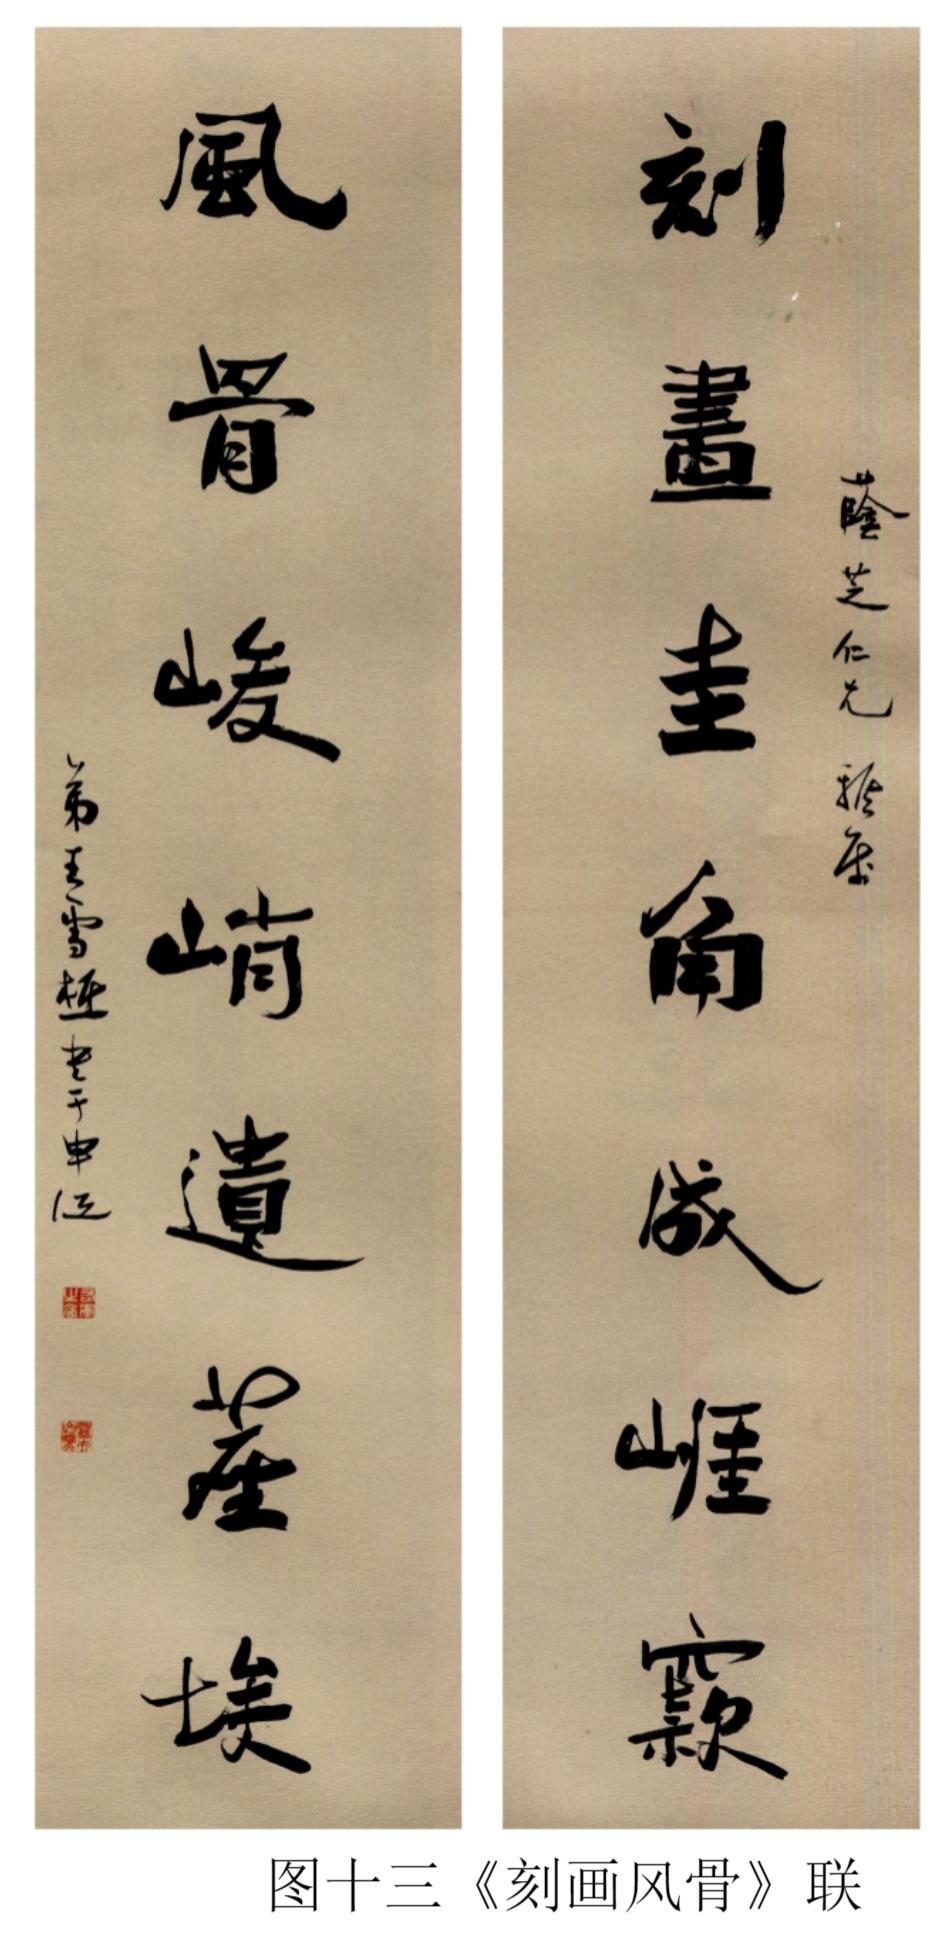 蔭芝仁兄 雅屬
刻畫圭角成崕窾
風骨峻峭遺塵埃
弟王雪樵書于申江
图十三《刻画风骨》联